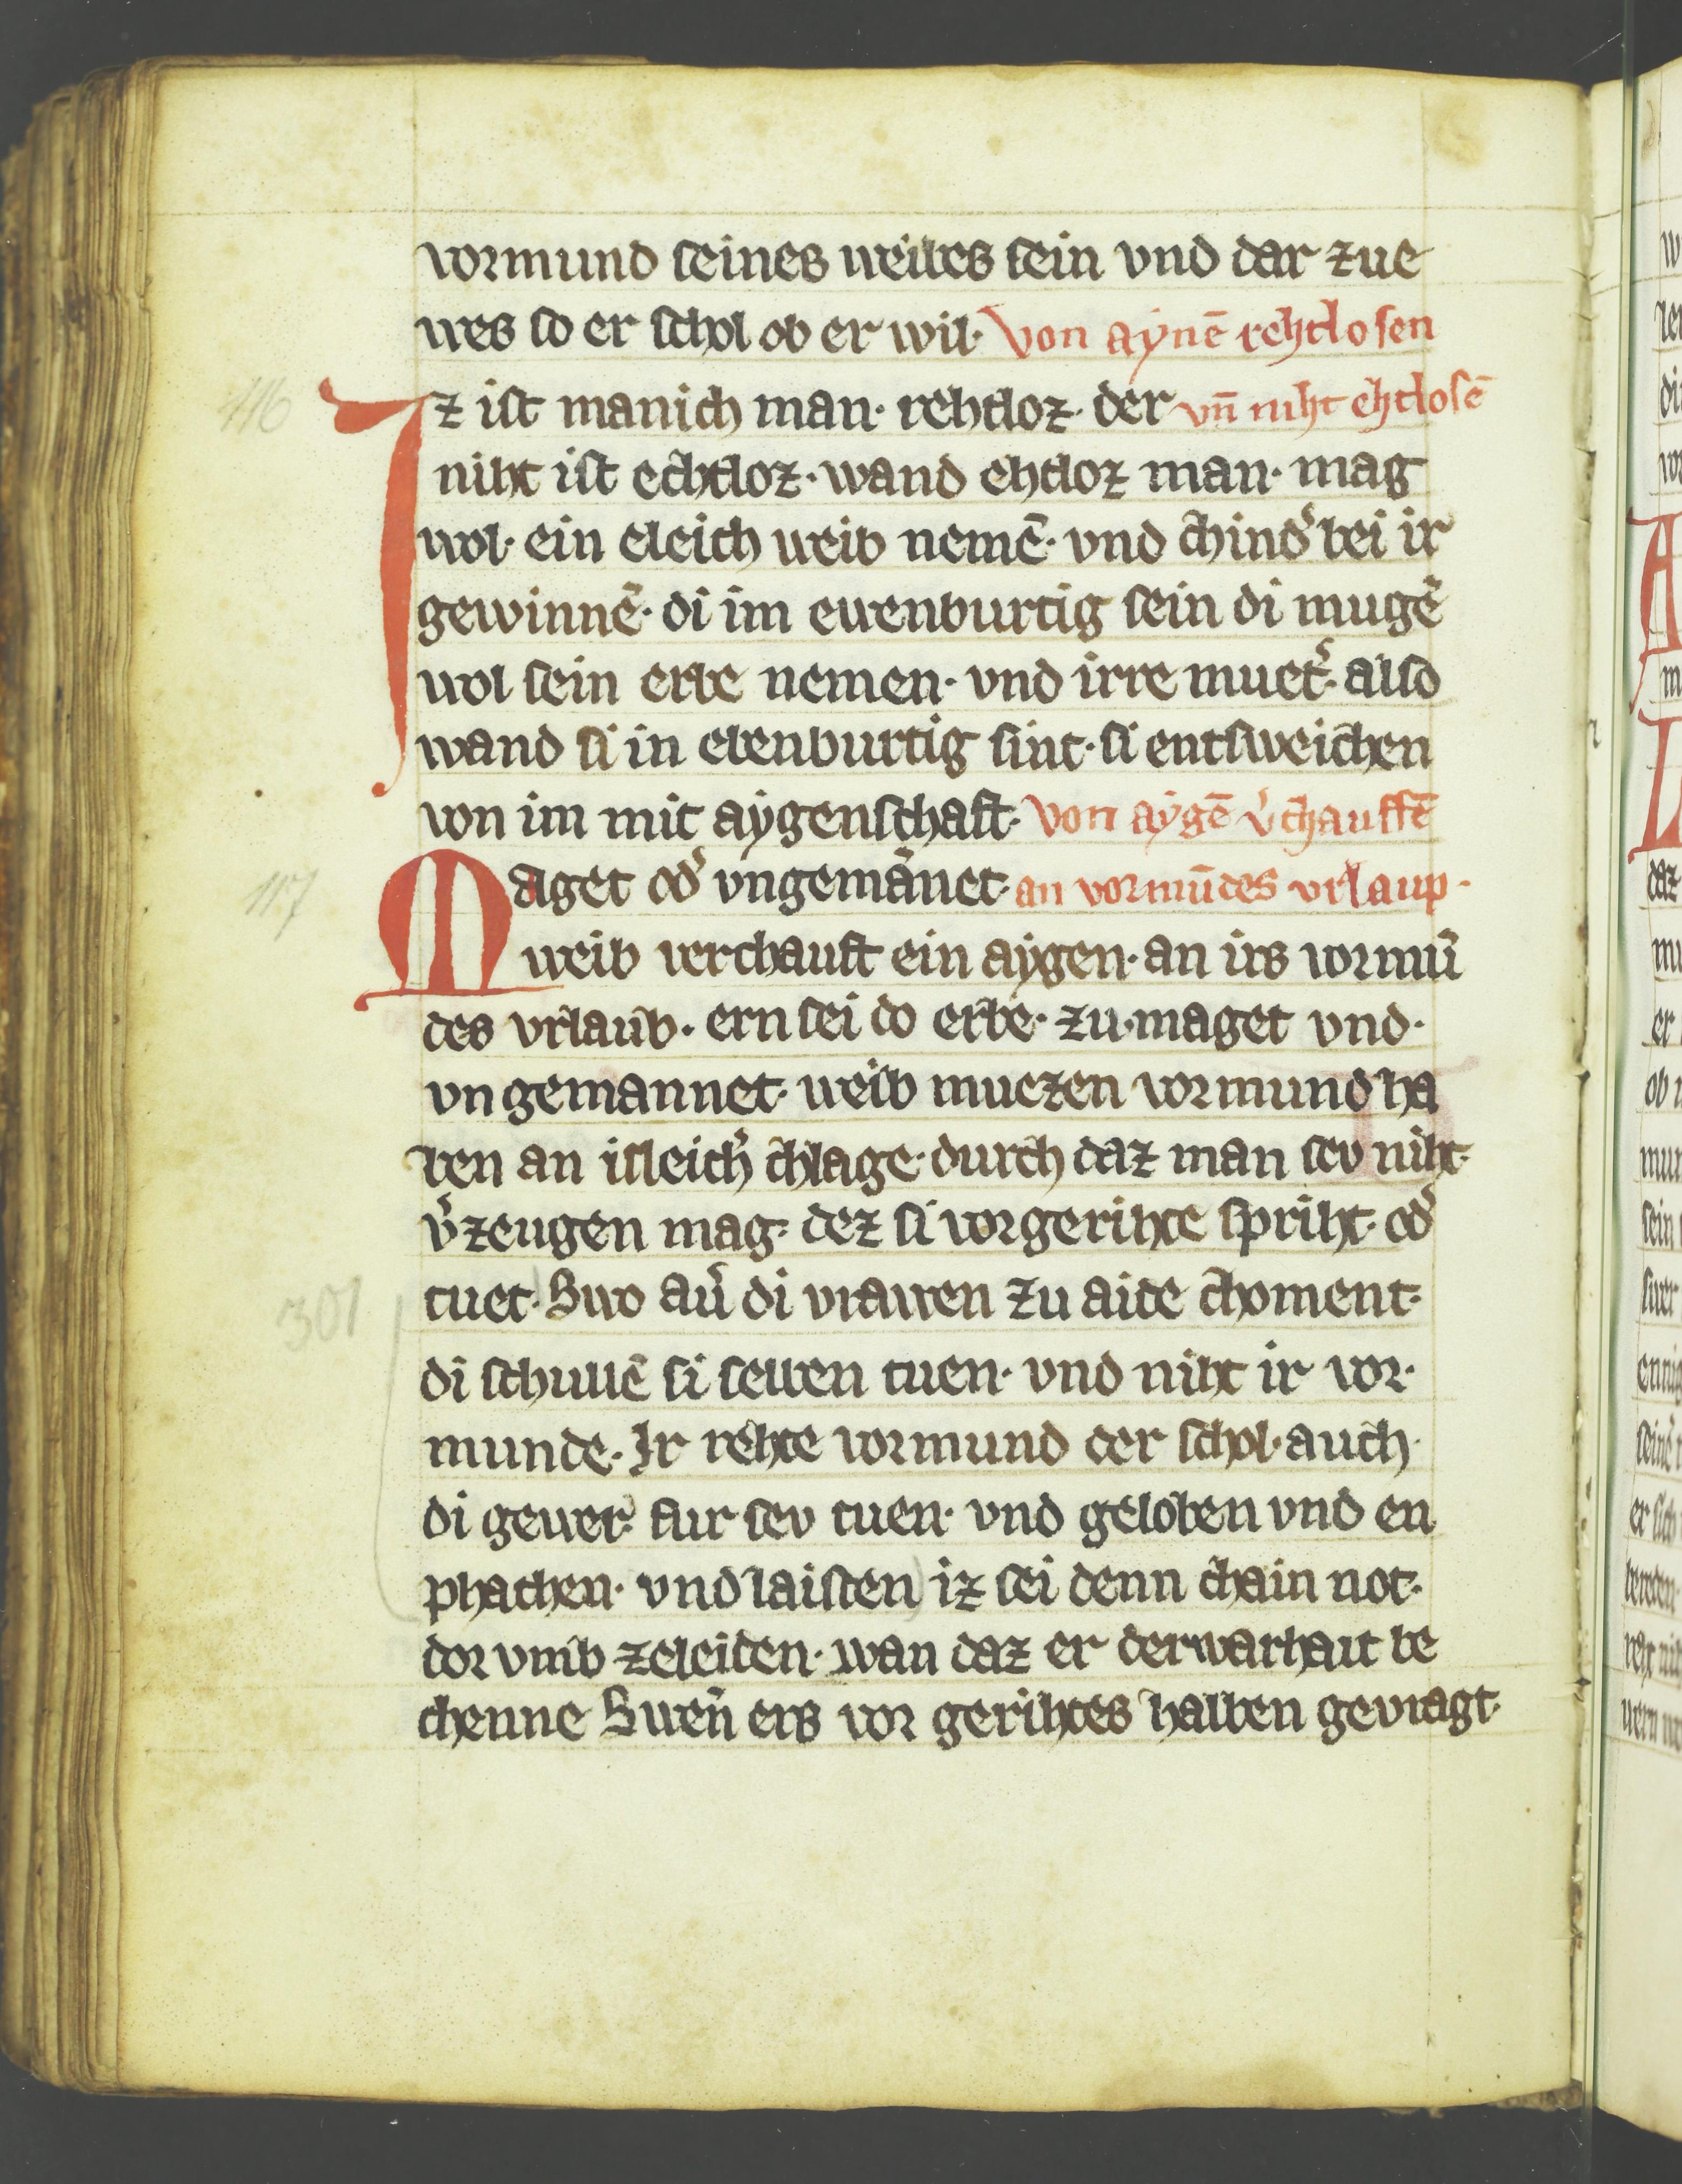 vormund seines weibes sein vnd dar zue
wes so er schol ob er wil· Von aÿnē rehtlosen
116
Iz ist manich man· rehtloz· der vn̄ niht ehtlosē
niht ist echtloz· wand ehtloz man· mag
wol· ein eleich weib nemē· vnd chind͛ bei ir
gewinnē· di im euenburtig sein di mugē
wol sein erbe nemen· vnd irre muet͛· also
wand si in ebenburtig sint· si entsweichen
von im mit aÿgenschaft· Von aÿgē v͛chauffē
117
Maget od͛ vngemannet· an vormūdes vrlaup·
weib verchauft ein aÿgen· an irs vormū
des vrlaub· ern sei do erbe· zu· maget vnd·
vngemannet· weib muezen vormund ha
ben an isleich͛ chlage· durch daz man sev niht·
v͛zeugen mag· dez si vor gerihte spriht· od͛
301
tuet· Swo au͛ di vrawen zu aide choment·
di schullē si selben tuen· vnd niht ir vor·
munde· Ir rehte vormund der schol· auch·
di gewer· fur sev tuen· vnd geloben vnd en
phachen· vnd laisten) iz sei denn chain not·
dor vmb zeleiden· wan daz er der warhait be
chenne Swen̄ ers vor gerihtes halben gevragt·